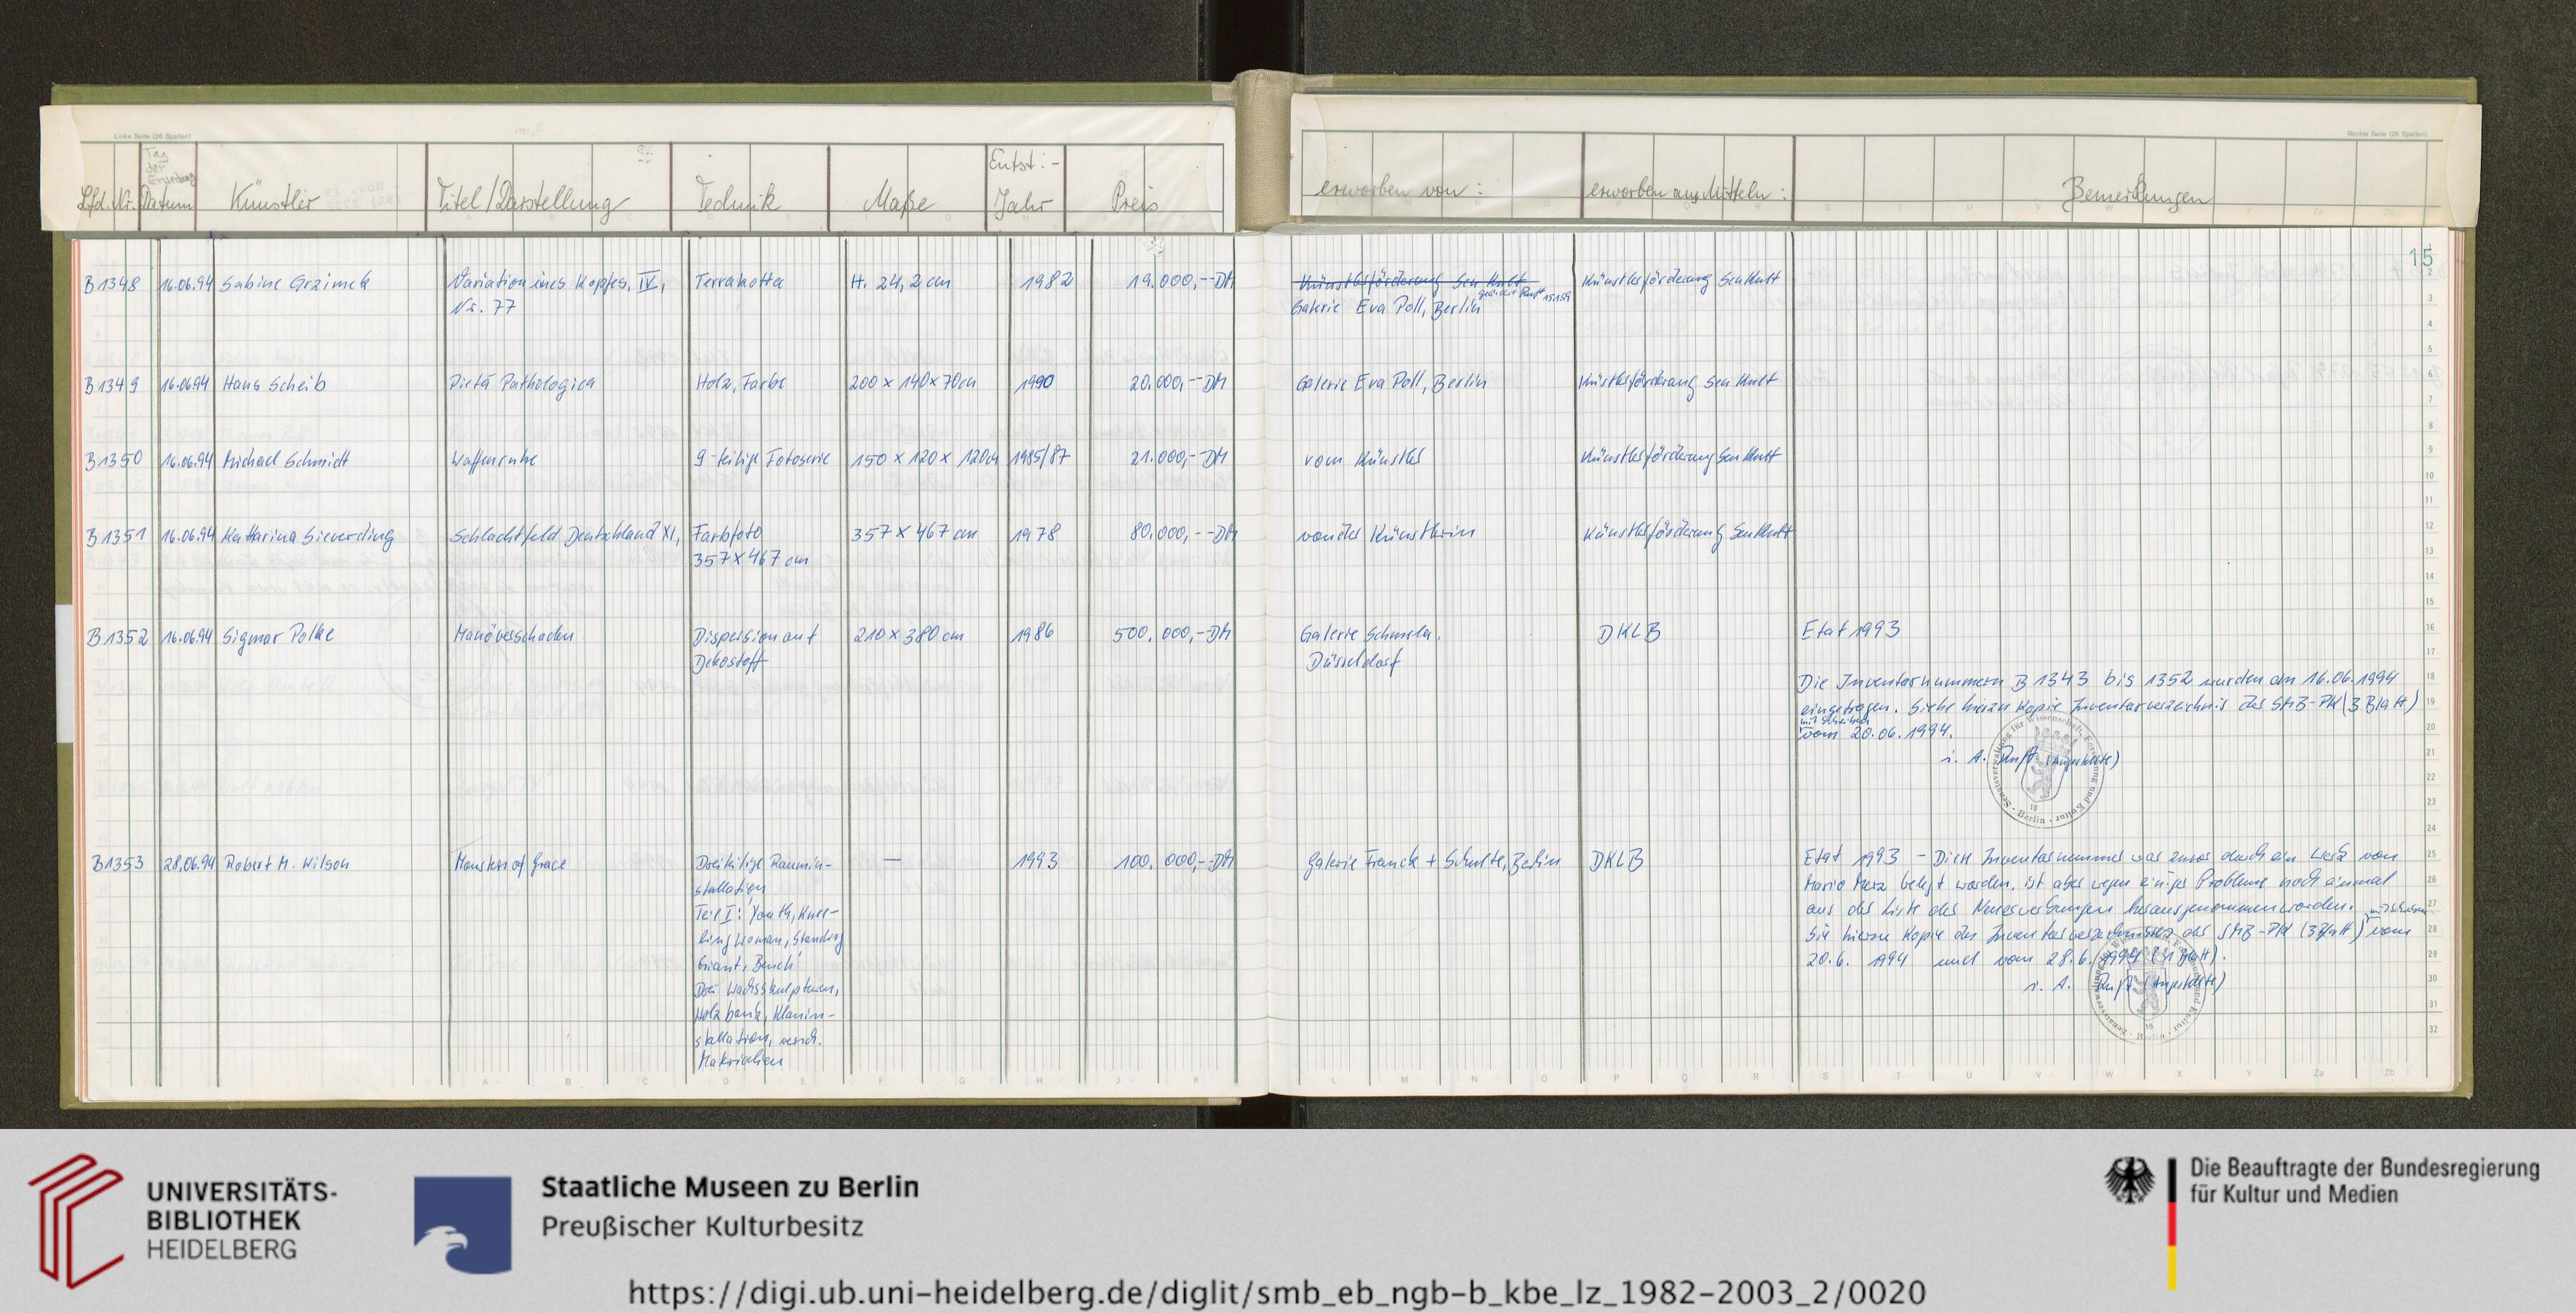 Linke Seite (26 Spalten)
Rechte Seite (26 Spalten)
Lfd. Nr. Tag der Erwerbung Datum Künstler Titel/Darstellung Technik Maße Entst.- Jahr Preis erworben von: erworben aus Mitteln: Bemerkungen
15
B1348 16.06.94 Sabine Grzimek Variation eines Kopfes, IV, Terrakotta H. 24,2 cm 1982 19.000,-- DM Künstlerförderung Sen Kult Künstlerförderung Sen Kult
Nr. 77 Galerie Eva Poll, Berlin
B1349 16.06.94 Hans Scheib Pietà Pathologica Holz, Farbe 200 x 140 x 70 cm 1990 20.000,-- DM Galerie Eva Poll, Berlin Künstlerförderung Sen Kult
B1350 16.06.94 Michael Schmidt Waffenruhe 9-teilige Fotoserie 150 x 120 x 120 cm 1985/87 21.000,- DM vom Künstler Künstlerförderung Sen Kult
B1351 16.06.94 Katharina Sieverding Schlachtfeld Deutschland XI, Farbfoto 357 x 467 cm 1978 80.000,-- DM von der Künstlerin Künstlerförderung Sen Kult
357 x 467 cm
B1352 16.06.94 Sigmar Polke Manöverschaden Dispersion auf 210 x 380 cm 1986 500.000,- DM Galerie Schmela, DKLB Etat 1993
Dekostoff Düsseldorf
Die Inventarnummern B 1343 bis 1352 wurden am 16.06.1994
eingetragen. Siehe hierzu Kopie Inventarverzeichnis der SMB-PK (3 Blatt)
mit Schreiben
vom 20.06.1994.
i. A. (Angestellte)
Senatsverwaltung für Wissenschaft, Forschung und Kultur · Berlin
10
B1353 28.06.94 Robert M. Wilson Monsters of Grace Dreiteilige Raumin- — 1993 100.000,-- DM Galerie Franck + Schulte, Berlin DKLB Etat 1993 - Diese Inventarnummer war zuvor durch ein Werk von
stallation Mario Merz belegt worden, ist aber wegen einiger Probleme noch einmal
Teil I: 'Youth, Knee- aus der Liste der Neuerwerbungen herausgenommen worden. mit Schreiben
ling Woman, Standing Sie hierzu Kopie des Inventarverzeichnisses der SMB-PK (3 Blatt) vom
Giant, Bench' 20.6. 1994 und vom 28.6.1994 (1 Blatt).
Drei Wachsskulpturen, i. A. (Angestellte)
Holzbank, Klangin-
stallation, versch.
Materialien
UNIVERSITÄTS-
BIBLIOTHEK
HEIDELBERG
Staatliche Museen zu Berlin
Preußischer Kulturbesitz
Die Beauftragte der Bundesregierung
für Kultur und Medien
https://digi.ub.uni-heidelberg.de/diglit/smb_eb_ngb-b_kbe_lz_1982-2003_2/0020